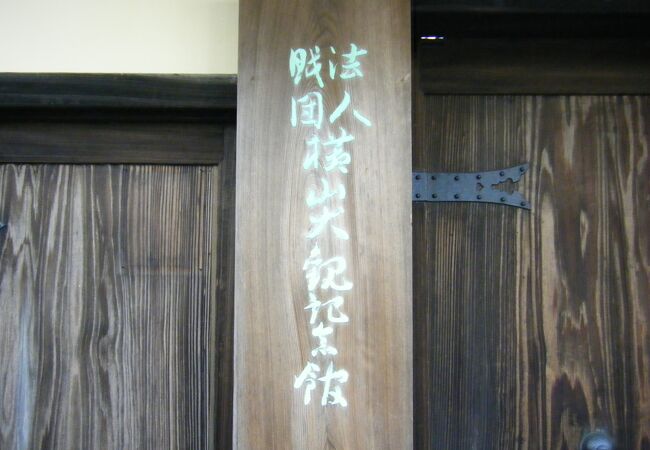 財団法人横山大観記念館